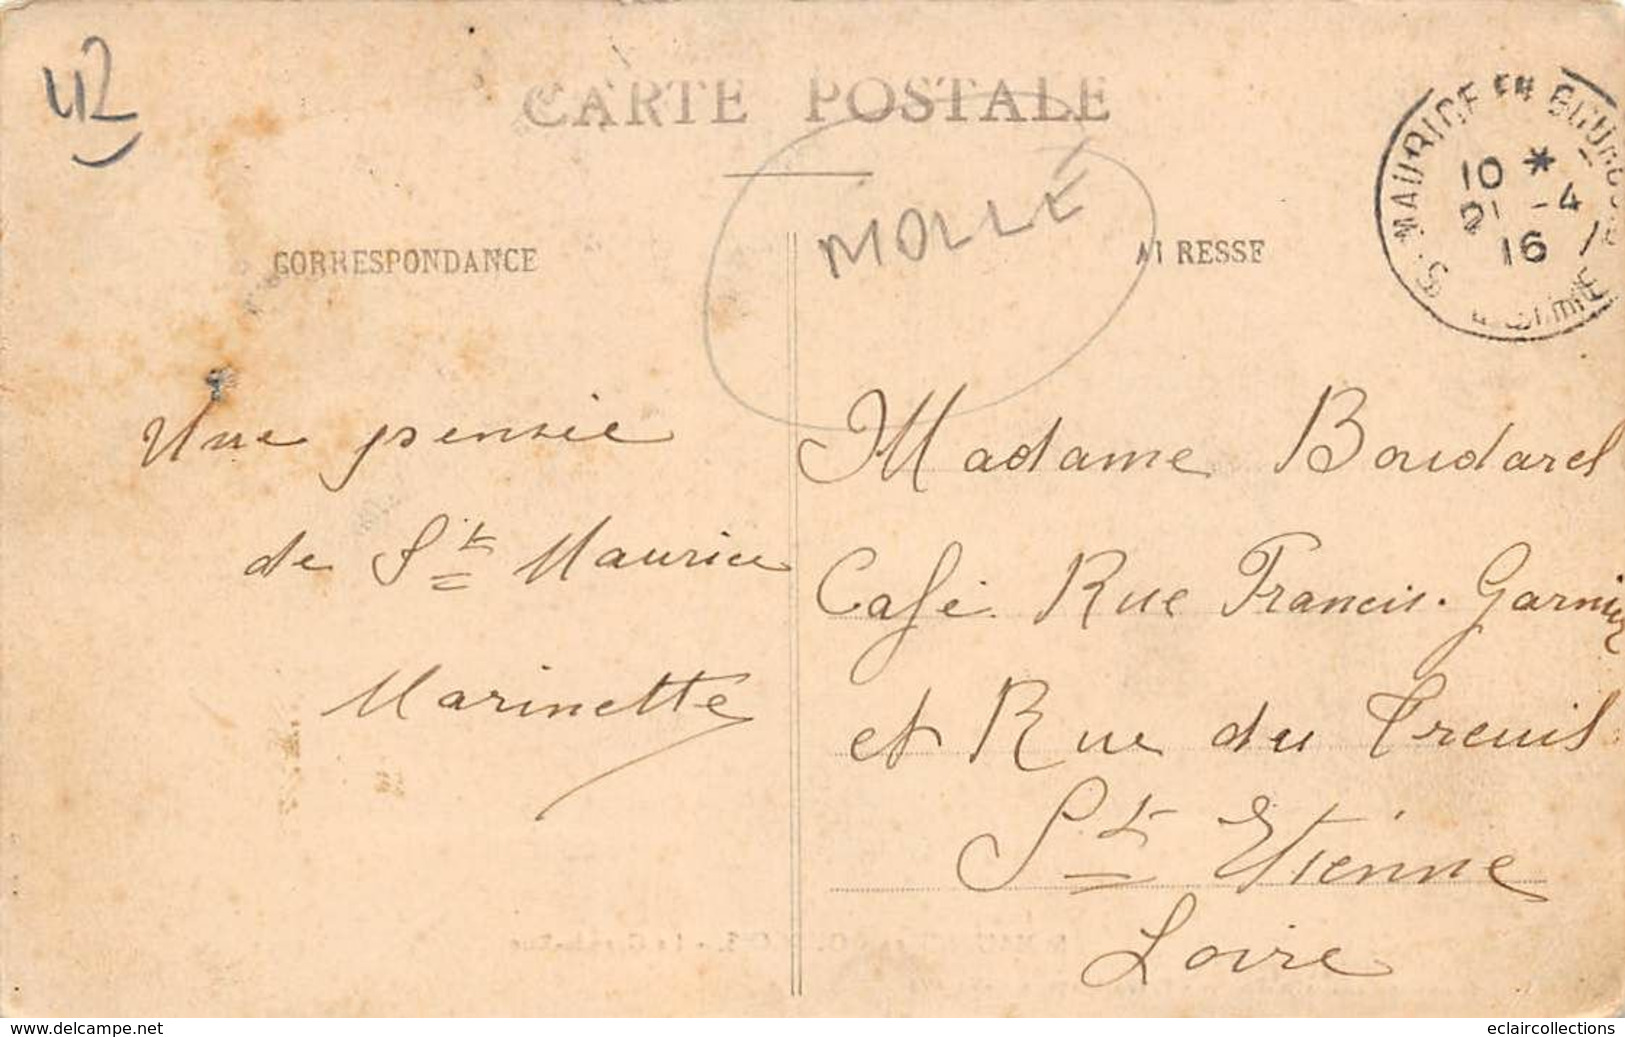 42
CARTE POSTALE
MOLLÉ
CORRESPONDANCE
ADRESSE
S. MAURICE EN BOURGOIS
10 *
21 -4
16
Une pensée
de St Maurice
Marinette
Madame Boudarel
Café Rue Francis. Garnier
et Rue du Treuil
St Etienne
Loire
www.delcampe.net
eclaircollections